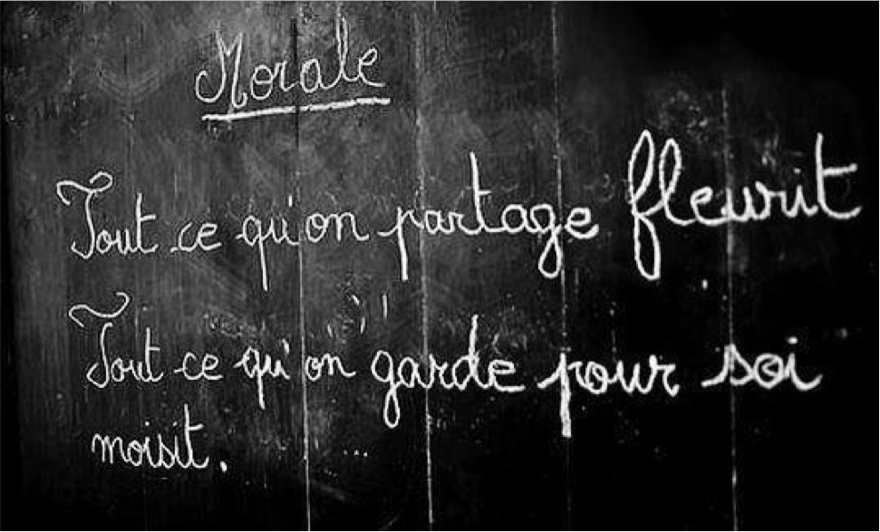 Morale
Tout ce qu'on partage fleurit
Tout ce qu'on garde pour soi
moisit.